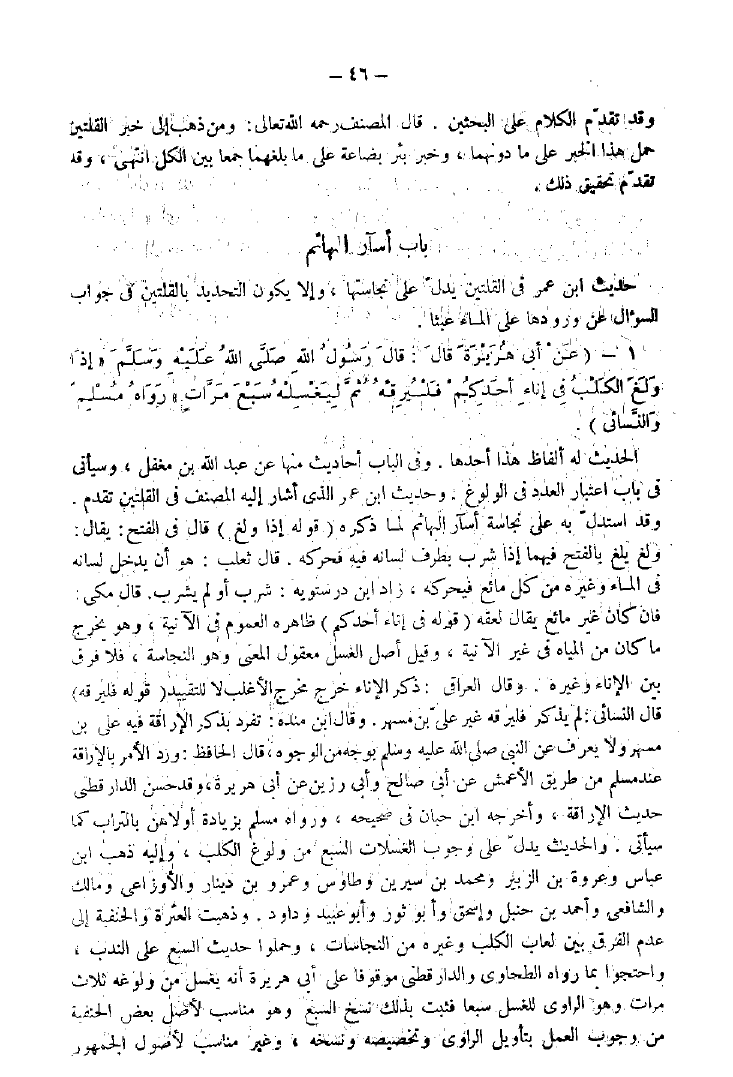 – ٤٦ –
وقد تقدّم الكلام على البحثين . قال المصنف رحمه الله تعالى: ومن ذهب إلى خبر القلتين
حمل هذا الخبر على ما دونهما ، وخبر بئر بضاعة على ما بلغهما جمعا بين الكل انتهى ، وقد
تقدّم تحقيق ذلك .
باب أسآر البهائم
حديث ابن عمر فى القلتين يدلّ على نجاستها ، وإلا يكون التحديد بالقلتين فى جواب
السؤال عن ورودها على الماء عبثا .
١ – ( عَنْ أبى هُرَيْرَةَ قالَ : قالَ رَسُولُ اللهِ صَلَّى اللهُ عَلَيْهِ وَسَلَّمَ « إذَا
وَلَغَ الكَلْبُ فِى إناءِ أحَدِكُمْ فَلْيُرِقْهُ ثُمَّ لْيَغْسِلْهُ سَبْعَ مَرَّاتٍ » رَوَاهُ مُسْلِمٌ
وَالنَّسائى ) .
الحديث له ألفاظ هذا أحدها . وفى الباب أحاديث منها عن عبد الله بن مغفل ، وسيأتى
فى باب اعتبار العدد فى الولوغ . وحديث ابن عمر الذى أشار إليه المصنف فى القلتين تقدم .
وقد استدلّ به على نجاسة أسآر البهائم لما ذكره ( قوله إذا ولغ ) قال فى الفتح : يقال :
ولغ يلغ بالفتح فيهما إذا شرب بطرف لسانه فيه فحركه . قال ثعلب : هو أن يدخل لسانه
فى الماء وغيره من كل مائع فيحركه ، زاد ابن درستويه : شرب أو لم يشرب. قال مكى :
فان كان غير مائع يقال لعقه ( قوله فى إناء أحدكم ) ظاهره العموم فى الآنية ، وهو يخرج
ما كان من المياه فى غير الآنية ، وقيل أصل الغسل معقول المعنى وهو النجاسة ، فلا فرق
بين الإناء وغيره . وقال العراقى : ذكر الإناء خرج مخرج الأغلب لا للتقييد ( قوله فليرقه)
قال النسائى : لم يذكر فليرقه غير علىّ بن مسهر . وقال ابن منده : تفرد بذكر الإراقة فيه على بن
مسهر ولا يعرف عن النبى صلى الله عليه وسلم بوجه من الوجوه ، قال الحافظ : ورد الأمر بالإراقة
عند مسلم من طريق الأعمش عن أبى صالح وأبى رزين عن أبى هريرة ، وقد حسن الدار قطنى
حديث الإراقة ، وأخرجه ابن حبان فى صحيحه ، ورواه مسلم بزيادة أولاهنّ بالتراب كما
سيأتى . والحديث يدلّ على وجوب الغسلات السبع من ولوغ الكلب ، وإليه ذهب ابن
عباس وعروة بن الزبير ومحمد بن سيرين وطاوس وعمرو بن دينار والأوزاعى ومالك
والشافعى وأحمد بن حنبل وإسحق وأبو ثور وأبو عبيد وداود . وذهبت العترة والحنفية إلى
عدم الفرق بين لعاب الكلب وغيره من النجاسات ، وحملوا حديث السبع على الندب ،
واحتجوا بما رواه الطحاوى والدار قطنى موقوفا على أبى هريرة أنه يغسل من ولوغه ثلاث
مرات وهو الراوى للغسل سبعا فثبت بذلك نسخ السبع وهو مناسب لأصل بعض الحنفية
من وجوب العمل بتأويل الراوى وتخصيصه ونسخه ، وغير مناسب لأصول الجمهور